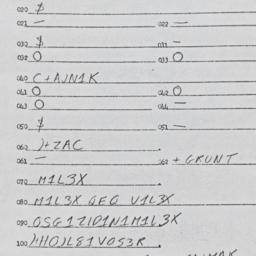 020 $
021 — 022 —
030 $ 031 —
032 O 033 O
040 C+AJN1K
041 O 042 O
043 O 044 —
050 $ 051 —
060 )+ZAC
061 — 062 +GRUNT
070 M1L3X
080 M1L3X QFQ V1L3X
090 OSG1Z1D1N1M1L3X
100